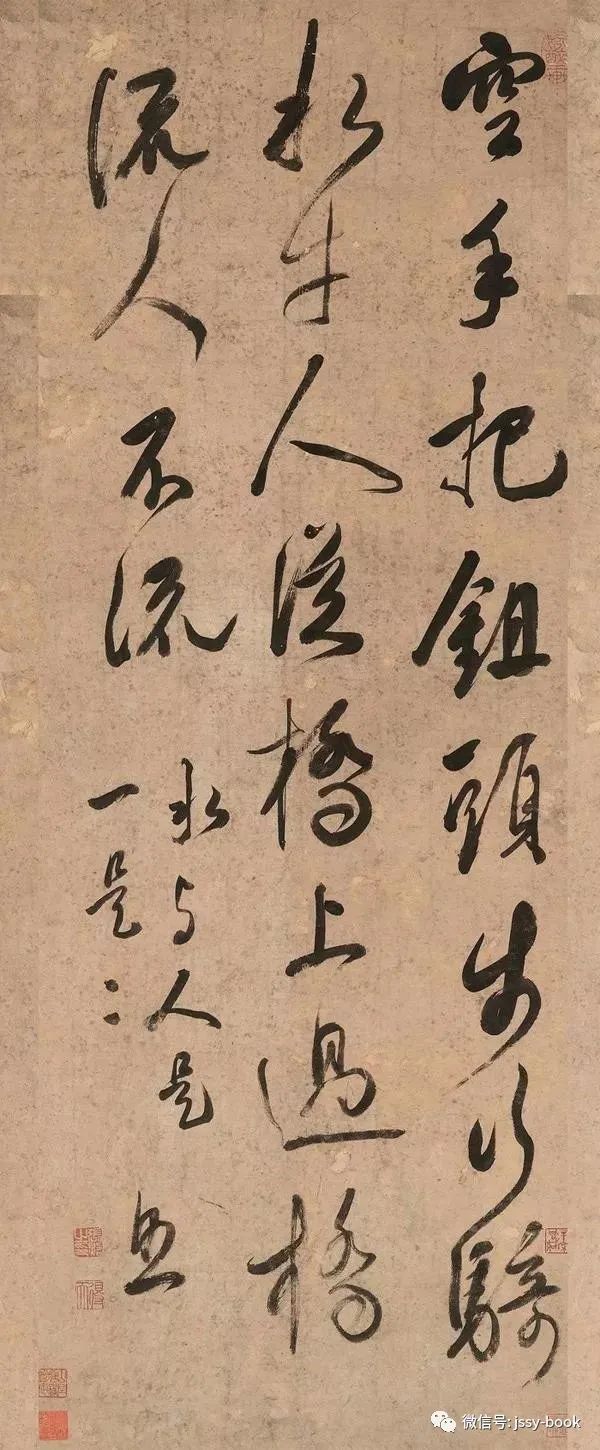 空手把鉏頭步行騎
水牛人從橋上過橋
流人不流
水与人是
一是二
微信号: jssy-book